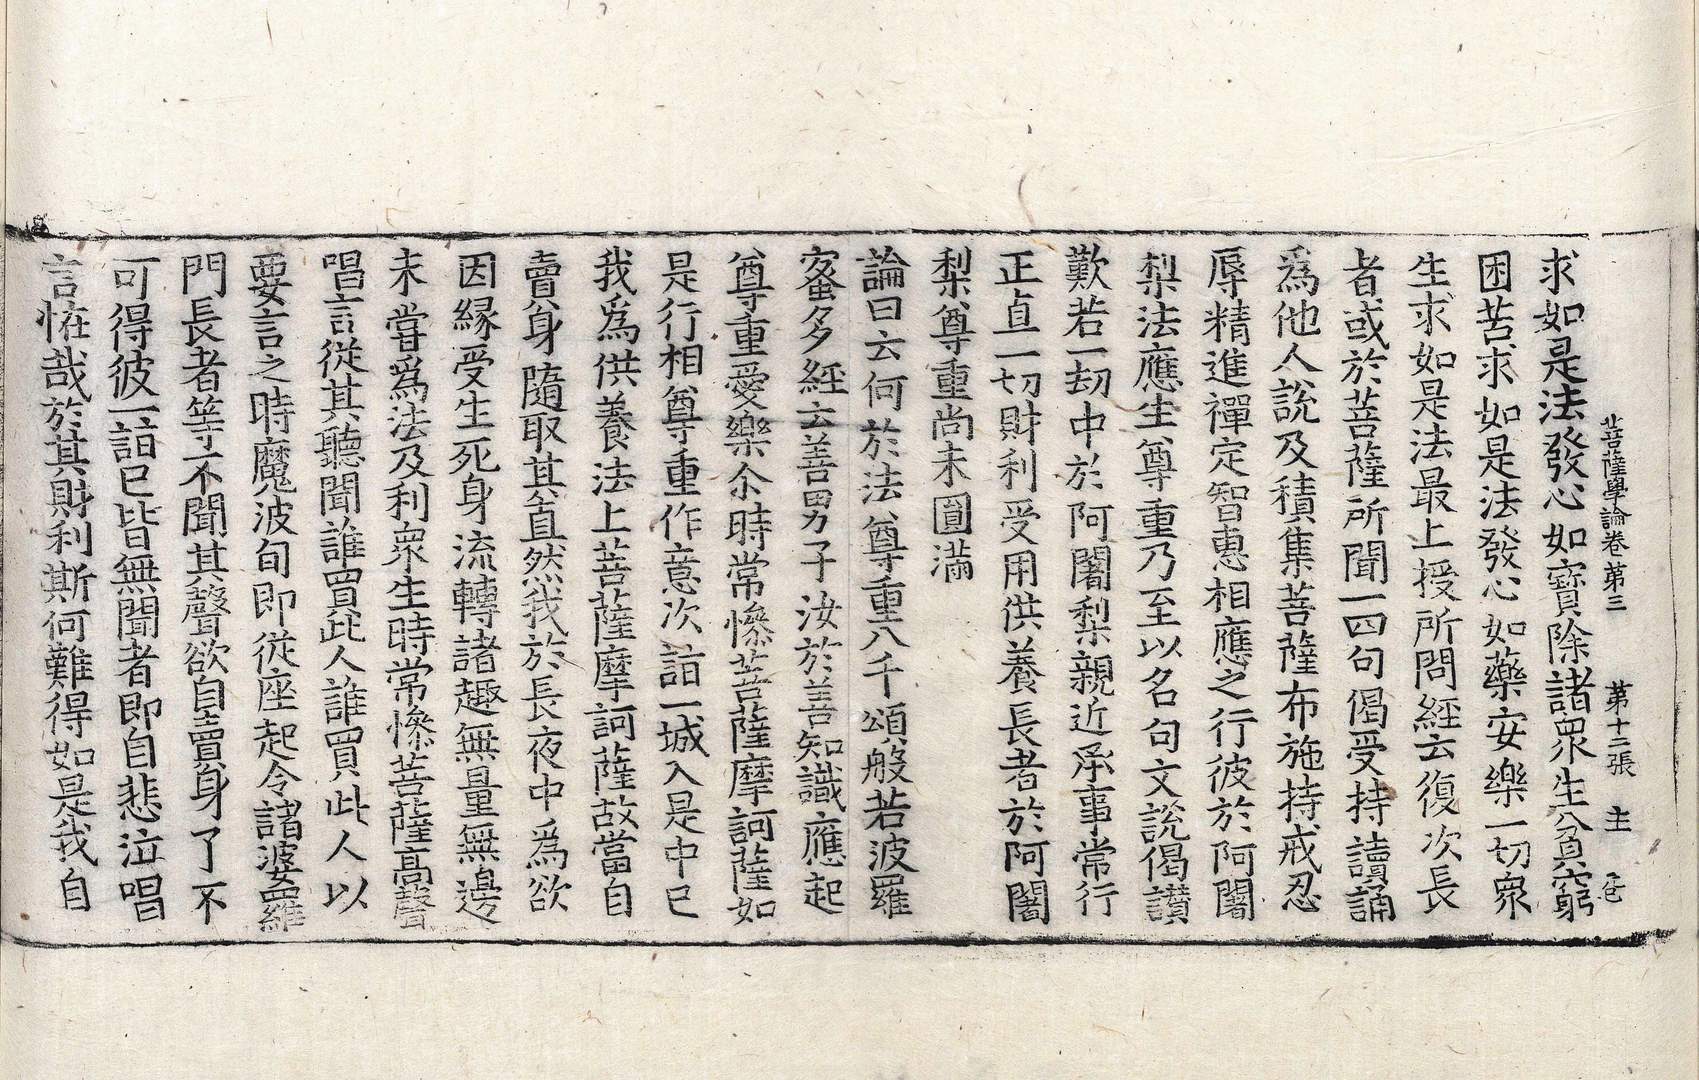 菩薩學論卷第三　第十二張　主
求如是法發心如寶除諸衆生貧窮
困苦求如是法發心如藥安樂一切衆
生求如是法最上授所問經云復次長
者或於菩薩所聞一四句偈受持讀誦
爲他人說及積集菩薩布施持戒忍
辱精進禪定智惠相應之行彼於阿闍
梨法應生尊重乃至以名句文說偈讃
歎若一劫中於阿闍梨親近承事常行
正直一切財利受用供養長者於阿闍
梨尊重尚未圓滿
論曰云何於法尊重八千頌般若波羅
蜜多經云善男子汝於善知識應起
尊重愛樂尒時常慘菩薩摩訶薩如
是行相尊重作意次詣一城入是中已
我爲供養法上菩薩摩訶薩故當自
賣身隨取其直然我於長夜中爲欲
因緣受生死身流轉諸趣無量無邊
未甞爲法及利衆生時常慘菩薩高聲
唱言從其聽聞誰買此人誰買此人以
要言之時魔波旬即從座起令諸婆羅
門長者等不聞其聲欲自賣身了不
可得彼一詣已皆無聞者即自悲泣唱
言恠哉於其財利斯何難得如是我自